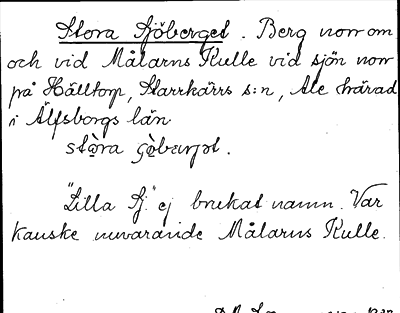 Stora Sjöberget. Berg norr om
och vid Målarns Kulle vid sjön norr
på Hälltorp, Starrkärrs s:n, Ale härad
i Älfsborgs län
stòra ʃö̀bærjət.
"Lilla Sj." ej brukat namn. Var
kanske nuvarande Målarns Kulle.